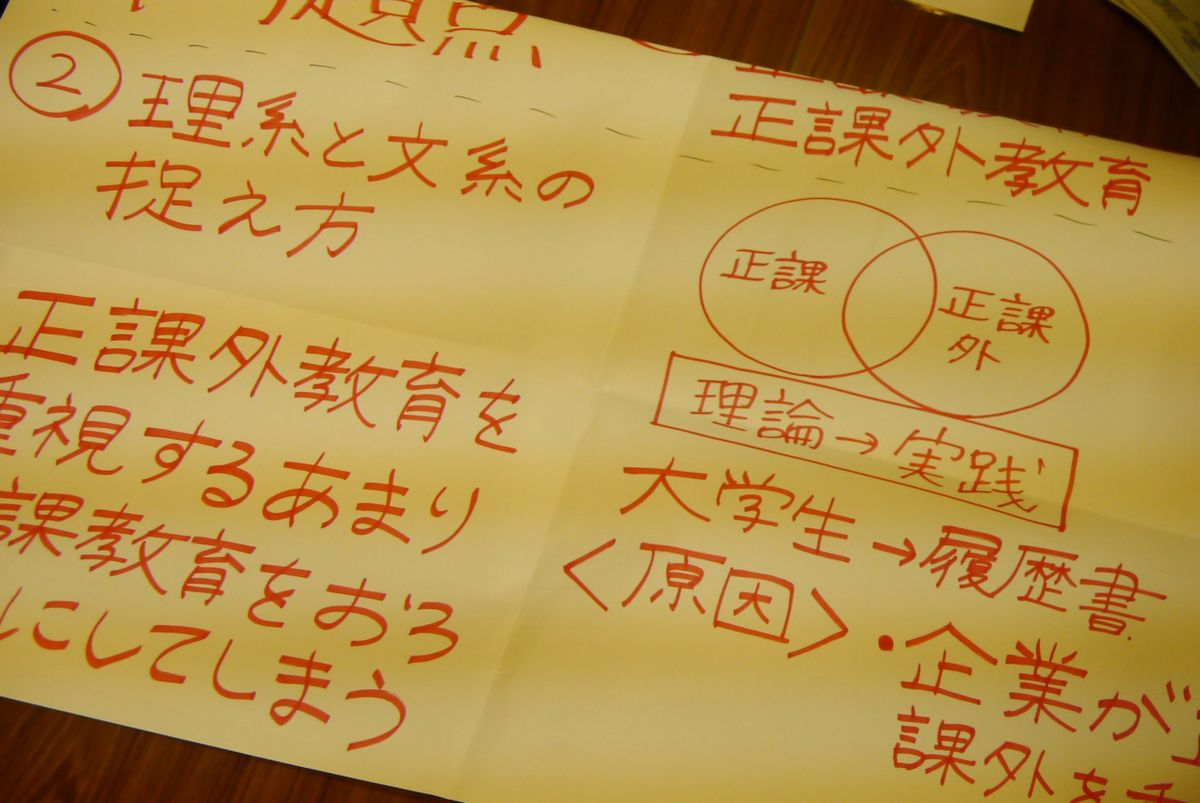 ② 理系と文系の
捉え方
正課外教育を
重視するあまり
課教育をおろ
にしてしまう
正課外教育
正課
正課
外
理論→実践
大学生→履歴書
〈原因〉
・企業が
課外を